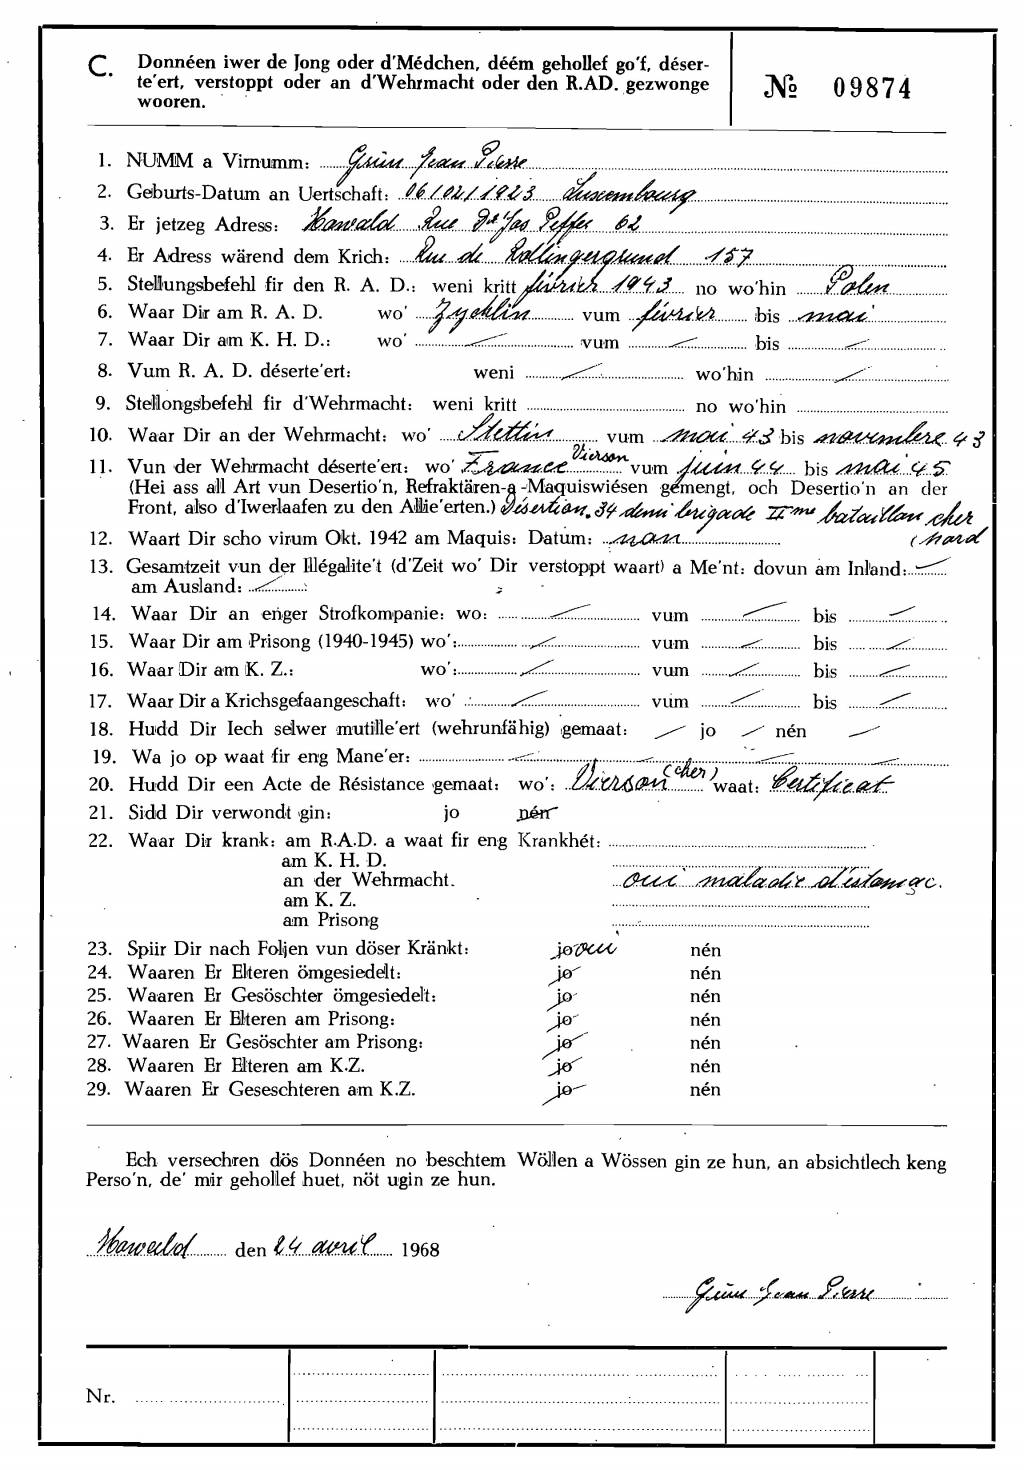 C. Donnéen iwer de Jong oder d'Médchen, déém gehollef go'f, déser-
te'ert, verstoppt oder an d'Wehrmacht oder den R.AD. gezwonge
wooren.
№ 09874
1. NUMM a Virnumm: Grün Jean Pierre
2. Geburts-Datum an Uertschaft: 06/02/1923 Luxembourg
3. Er jetzeg Adress: Howald Rue Dr Jos Peffer 62
4. Er Adress wärend dem Krich: Rue de Rollingergrund 157
5. Stellungsbefehl fir den R. A. D.: weni kritt février 1943 no wo'hin Polen
6. Waar Dir am R. A. D. wo' Zychlin vum février bis mai
7. Waar Dir am K. H. D.: wo' / vum / bis /
8. Vum R. A. D. déserte'ert: weni / wo'hin /
9. Stellongsbefehl fir d'Wehrmacht: weni kritt no wo'hin
10. Waar Dir an der Wehrmacht: wo' Stettin vum mai 43 bis novembre 43
11. Vun der Wehrmacht déserte'ert: wo' France Vierson vum juin 44 bis mai 45
(Hei ass all Art vun Desertio'n, Refraktären-a -Maquiswiésen gemengt, och Desertio'n an der
Front, also d'Iwerlaafen zu den Allie'erten.) Désertion. 34 demi brigade IIme bataillon cher
(nord
12. Waart Dir scho virum Okt. 1942 am Maquis: Datum: non
13. Gesamtzeit vun der Illégalite't (d'Zeit wo' Dir verstoppt waart) a Me'nt: dovun am Inland: /
am Ausland: /
14. Waar Dir an enger Strofkompanie: wo: / vum / bis /
15. Waar Dir am Prisong (1940-1945) wo': / vum / bis /
16. Waar Dir am K. Z.: wo': / vum / bis /
17. Waar Dir a Krichsgefaangeschaft: wo' / vum / bis /
18. Hudd Dir Iech selwer mutille'ert (wehrunfähig) gemaat: / jo / nén /
19. Wa jo op waat fir eng Mane'er: / / /
20. Hudd Dir een Acte de Résistance gemaat: wo': Vierson (cher) waat: Certificat
21. Sidd Dir verwondt gin: jo nén
22. Waar Dir krank: am R.A.D. a waat fir eng Krankhét:
am K. H. D.
an der Wehrmacht. oui maladie d'estomac.
am K. Z.
am Prisong
23. Spiir Dir nach Foljen vun döser Kränkt: jo oui nén
24. Waaren Er Elteren ömgesiedelt: jo nén
25. Waaren Er Gesöschter ömgesiedelt: jo nén
26. Waaren Er Elteren am Prisong: jo nén
27. Waaren Er Gesöschter am Prisong: jo nén
28. Waaren Er Elteren am K.Z. jo nén
29. Waaren Er Geseschteren am K.Z. jo nén
Ech versechren dös Donnéen no beschtem Wöllen a Wössen gin ze hun, an absichtlech keng
Perso'n, de' mir gehollef huet, nöt ugin ze hun.
Howald den 24 avril 1968
Grün Jean Pierre
Nr.